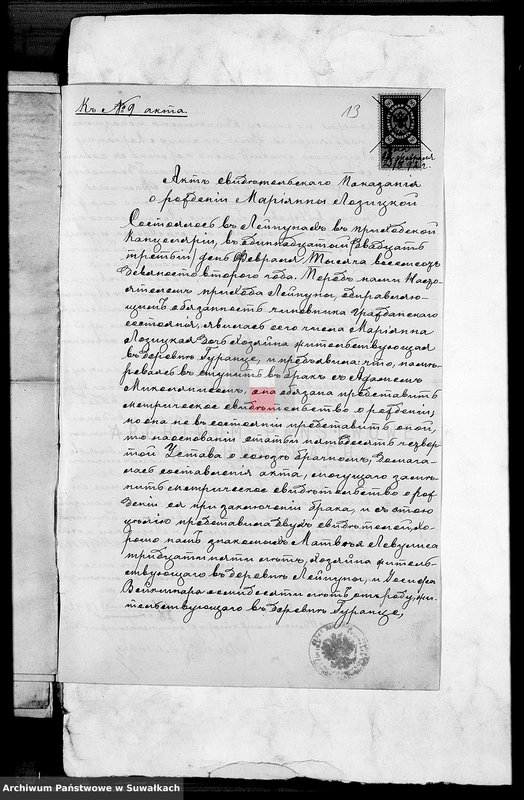 Къ №9 акта.
13
Актъ свидѣтельскаго показанія
о рожденіи Маріянны Лозицкой
Состоялось въ Лейпунахъ въ приходской
канцеляріи, въ одиннадцатой (двадцать
третьи) день Февраля тысяча восемсот
девяносто второго года. Передъ нами Насто-
ятелемъ прихода Лейпуны, отправляю-
щимъ обязанность чиновника гражданскаго
состоянія, явилась сего числа Маріянна
Лозицкая дочь хозяина жительствующая
въ деревнѣ Гуранце, и предъявила: что, намѣ-
реваясь вступить въ бракъ съ Адамомъ
она обязана представить
метрическое свидѣтельство о рожденіи,
но она не въ состояніи представить оной,
то на основаніи статьи пятдесятъ четвер-
той Устава о союзѣ брачномъ, домага-
лась составленія акта, могущаго замѣ-
нить метрическое свидѣтельство о рож
деніи ея при заключеніи брака, и съ этою
цѣлію представила двухъ свидѣтелей, хо-
рошо намъ знакомыхъ Матвея Левулиса
тридцати пяти лѣтъ, хозяина житель-
ствующаго въ деревнѣ Лейпуны, и Іосифа
семидесяти лѣтъ отъ роду, жи-
тельствующаго въ деревнѣ Гуранце,
Archiwum Państwowe w Suwałkach